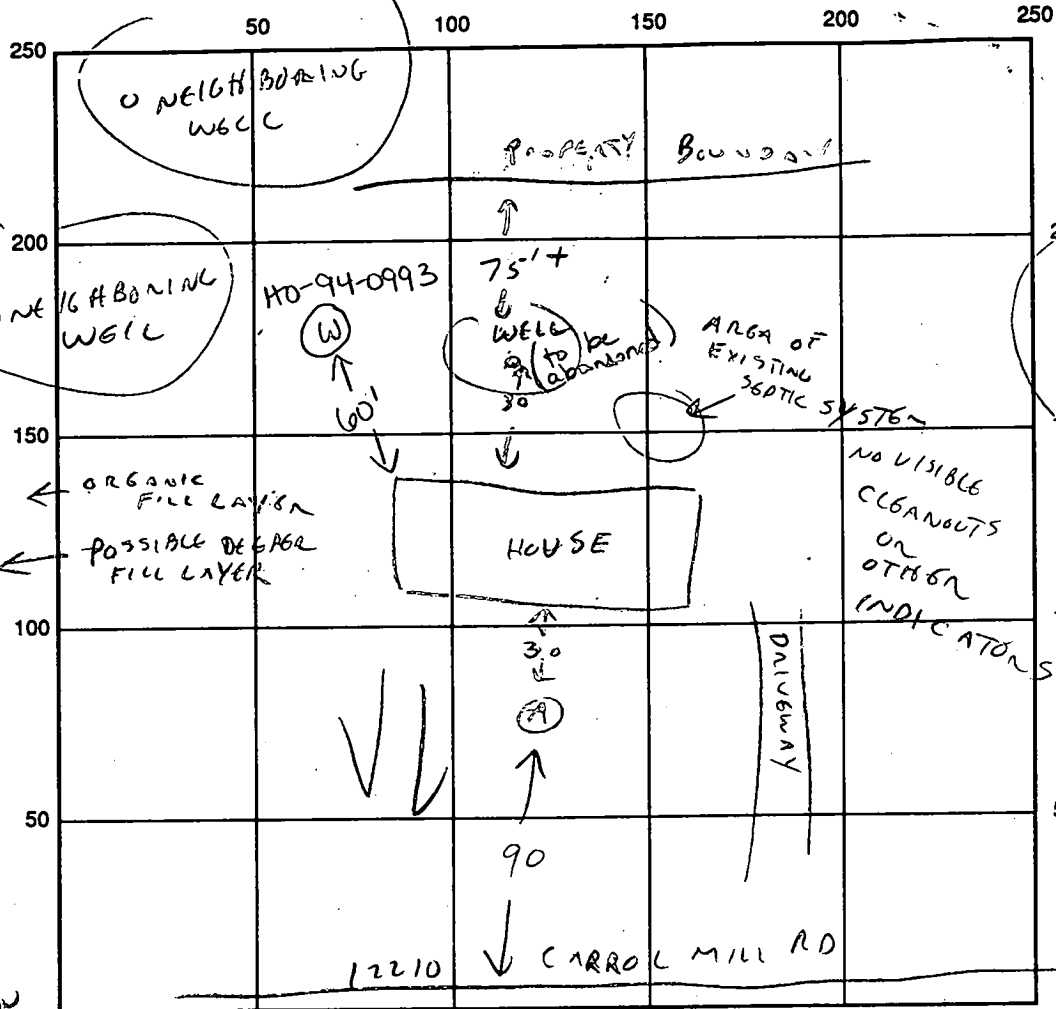 50 100 150 200 250
250
O NEIGHBORING
WELL
PROPERTY BOUNDARY
200
75'+
HO-94-0993
NEIGHBORING
WELL
W
WELL
(to be
abandoned)
30
60'
AREA OF
EXISTING
SEPTIC SYSTEM
150
NO VISIBLE
CLEANOUTS
OR
OTHER
INDICATORS
ORGANIC
FILL LAYER
POSSIBLE DEEPER
FILL LAYER
HOUSE
100
30
A
DRIVEWAY
50
90
12210 CARROL MILL RD